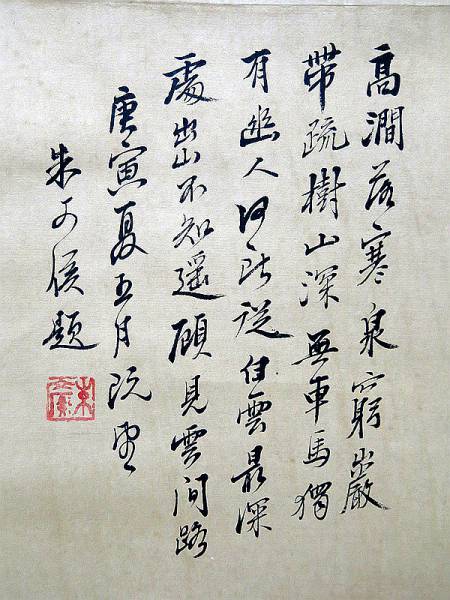 高澗落寒泉窮巖
帶疏樹山深無車馬獨
有幽人何所從白雲最深
處出山不知遥顧見雲間路
庚寅夏五月既望
朱侯題